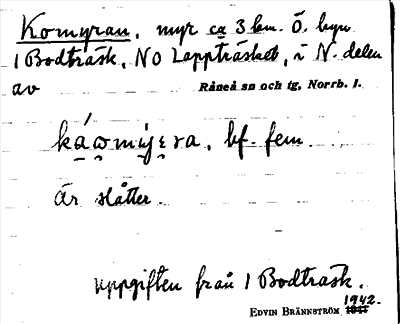 Komyran, myr ca 3 km. Ö. byn
1 Bodträsk, NO Lappträsket, i N. delen
av Råneå sn och tg, Norrb. l.
káωmýɛra, bf. fem.
Är slåtter.
uppgiften från 1 Bodträsk.
1942.
EDVIN BRÄNNSTRÖM 1941